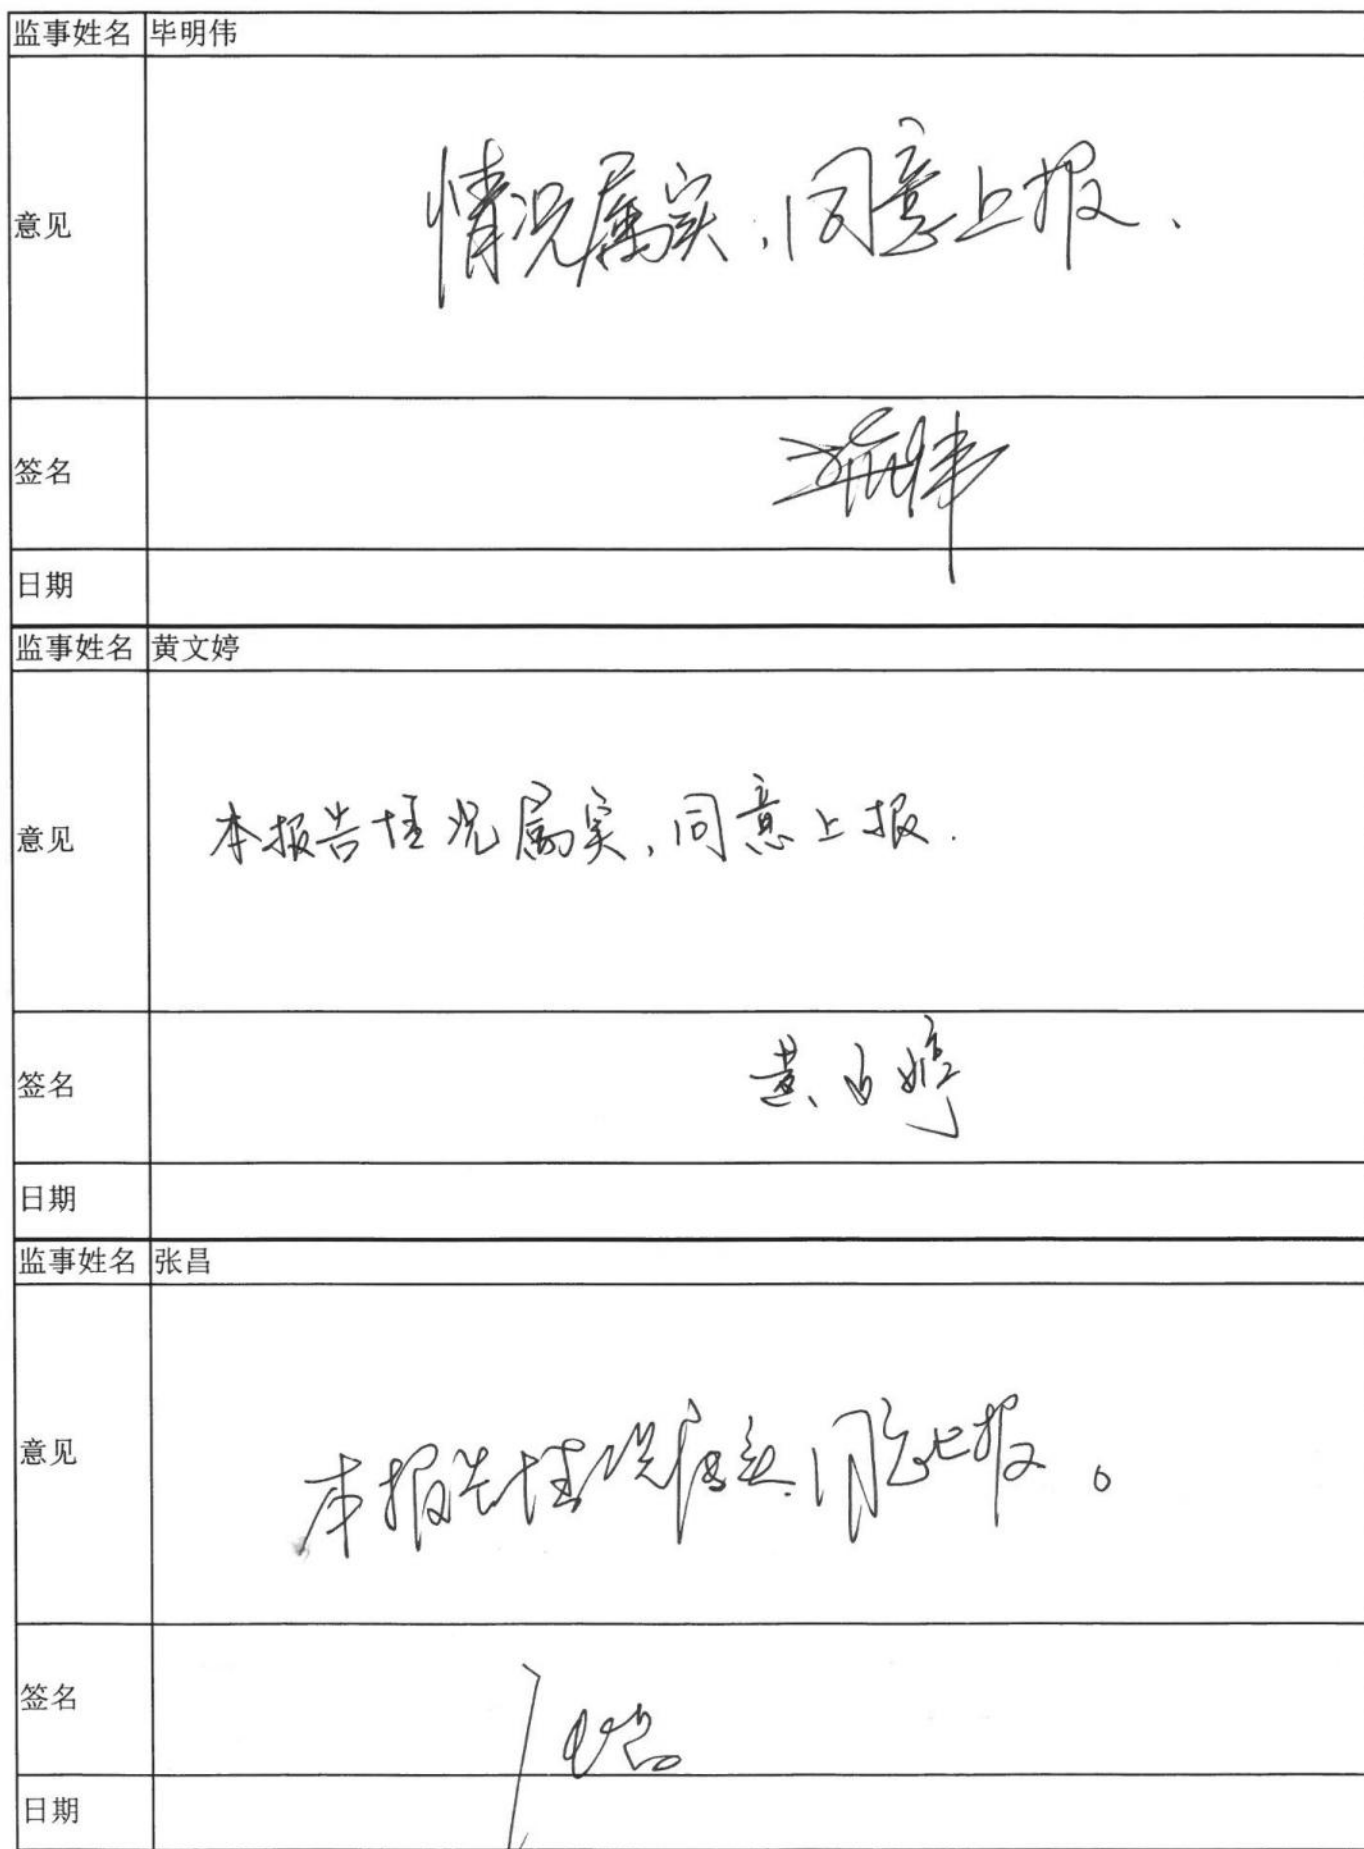 监事姓名 毕明伟
意见 情况属实，同意上报.
签名
日期
监事姓名 黄文婷
意见 本报告情况属实，同意上报.
签名 黄文婷
日期
监事姓名 张昌
意见 本报告情况属实.同意上报。
签名
日期